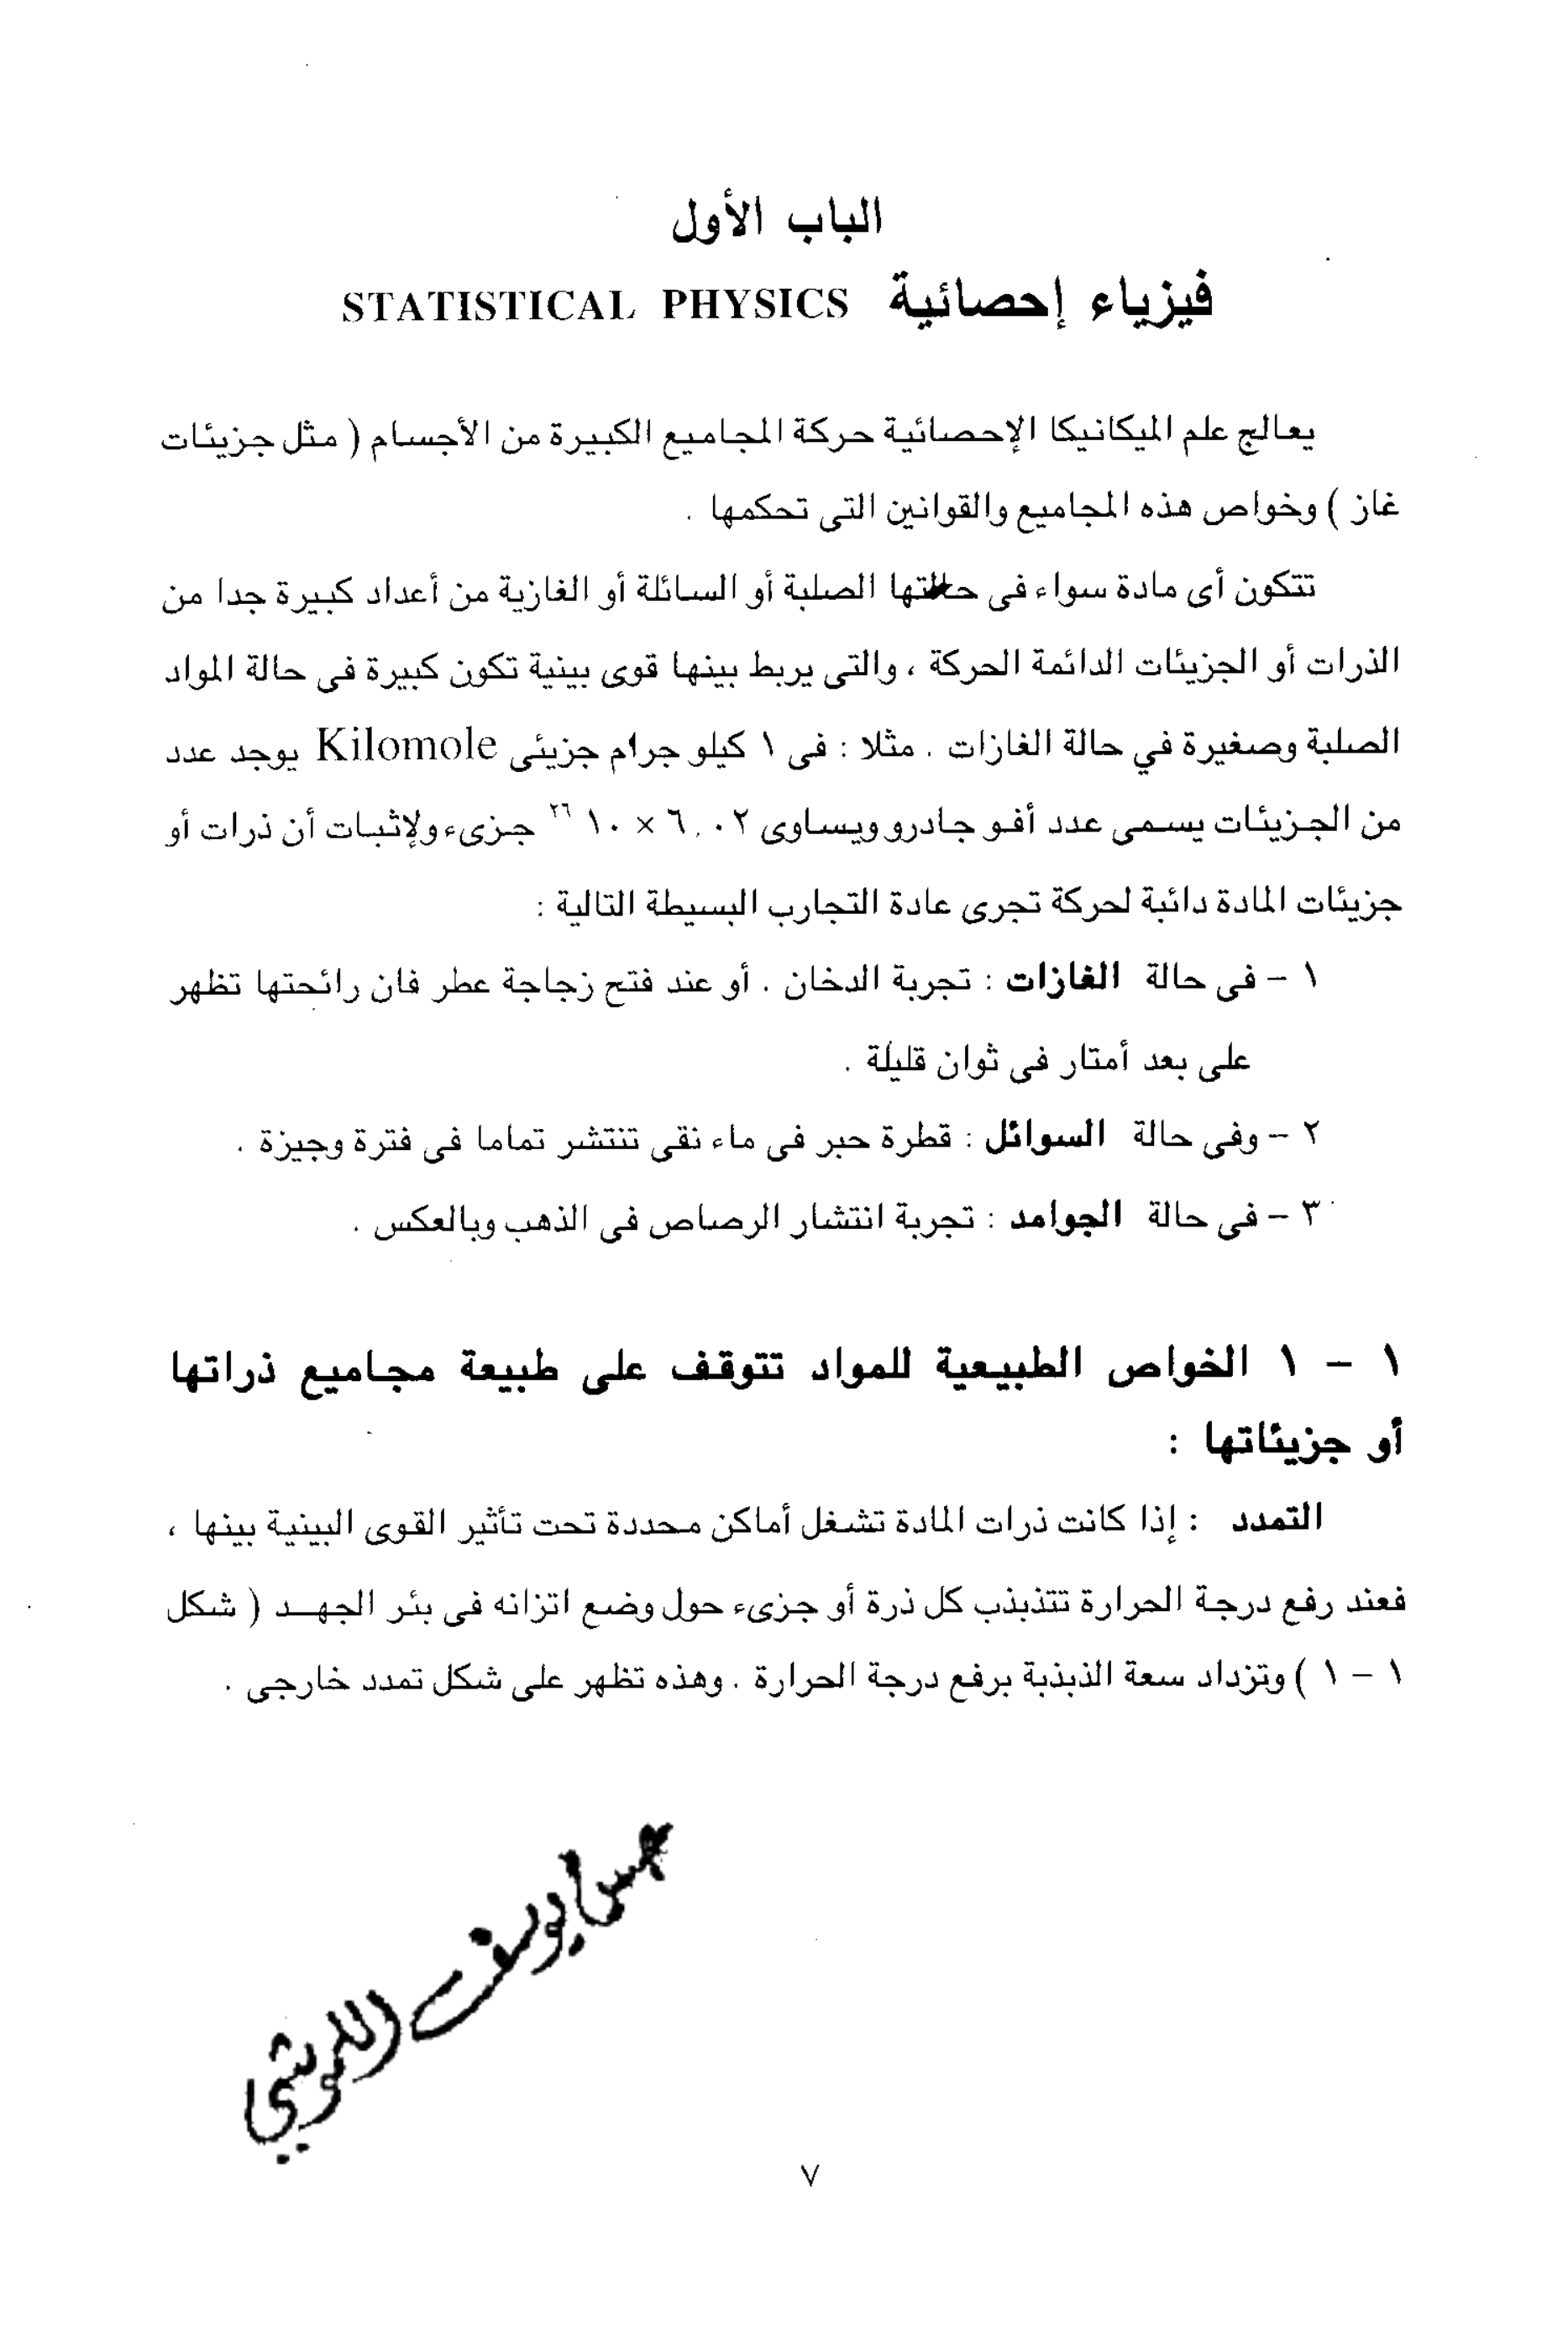 الباب الأول
فيزياء إحصائية STATISTICAL PHYSICS
يعالج علم الميكانيكا الإحصائية حركة المجاميع الكبيرة من الأجسام ( مثل جزيئات
غاز ) وخواص هذه المجاميع والقوانين التى تحكمها .
تتكون أى مادة سواء فى حالتها الصلبة أو السائلة أو الغازية من أعداد كبيرة جدا من
الذرات أو الجزيئات الدائمة الحركة ، والتى يربط بينها قوى بينية تكون كبيرة فى حالة المواد
الصلبة وصغيرة في حالة الغازات . مثلا : فى ١ كيلو جرام جزيئى Kilomole يوجد عدد
من الجزيئات يسمى عدد أفو جادرو ويساوى ٦,٠٢ × ١٠ ٢٦ جزىء ولإثبات أن ذرات أو
جزيئات المادة دائبة لحركة تجرى عادة التجارب البسيطة التالية :
١ – فى حالة الغازات : تجربة الدخان . أو عند فتح زجاجة عطر فان رائحتها تظهر
على بعد أمتار فى ثوان قليلة .
٢ – وفى حالة السوائل : قطرة حبر فى ماء نقى تنتشر تماما فى فترة وجيزة .
٣ – فى حالة الجوامد : تجربة انتشار الرصاص فى الذهب وبالعكس .
١ – ١ الخواص الطبيعية للمواد تتوقف على طبيعة مجاميع ذراتها
أو جزيئاتها :
التمدد : إذا كانت ذرات المادة تشغل أماكن محددة تحت تأثير القوى البينية بينها ،
فعند رفع درجة الحرارة تتذبذب كل ذرة أو جزىء حول وضع اتزانه فى بئر الجهد ( شكل
١ – ١ ) وتزداد سعة الذبذبة برفع درجة الحرارة . وهذه تظهر على شكل تمدد خارجى .
يوسف
٧